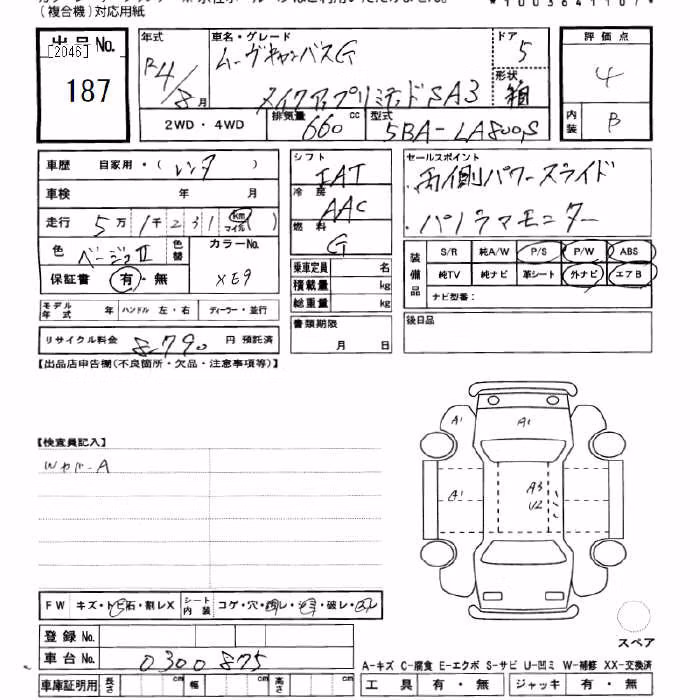 (複合機)対応用紙
出品No.
[2046]
187
年式
R4/8月
車名・グレード
ムーヴキャンバスG
メイクアップリミテッドSA3
ドア
5
形状
箱
評価点
4
内装
B
2WD・4WD
排気量 660 cc
型式 5BA-LA800S
車歴 自家用・(レンタ)
車検 年 月
走行 5万1千231 km マイル( )
色 ベージュII 色替
カラーNo. XE9
保証書 有・無
モデル年式 年 ハンドル 左・右 ディーラー・並行
リサイクル料金 8790 円 預託済
シフト
IAT
冷房
AAC
燃料
G
乗車定員 名
積載量 kg
総重量 kg
書類期限
月 日
セールスポイント
・両側パワースライド
・パノラマモニター
装備品
S/R 純A/W P/S P/W ABS
純TV 純ナビ 革シート 外ナビ エアB
ナビ型番:
後日品
【出品店申告欄(不良箇所・欠品・注意事項等)】
【検査員記入】
Wカバ-A
A1
A1
A1
A3
U2
FW キズ・トビ石・割レX
シート内装 コゲ・穴・・シミ・破レ・
登録No.
車台No. 0300875
車庫証明用 長さ cm 幅 cm 高さ cm
スペア
A-キズ C-腐食 E-エクボ S-サビ U-凹ミ W-補修 XX-交換済
工具 有・無 ジャッキ 有・無